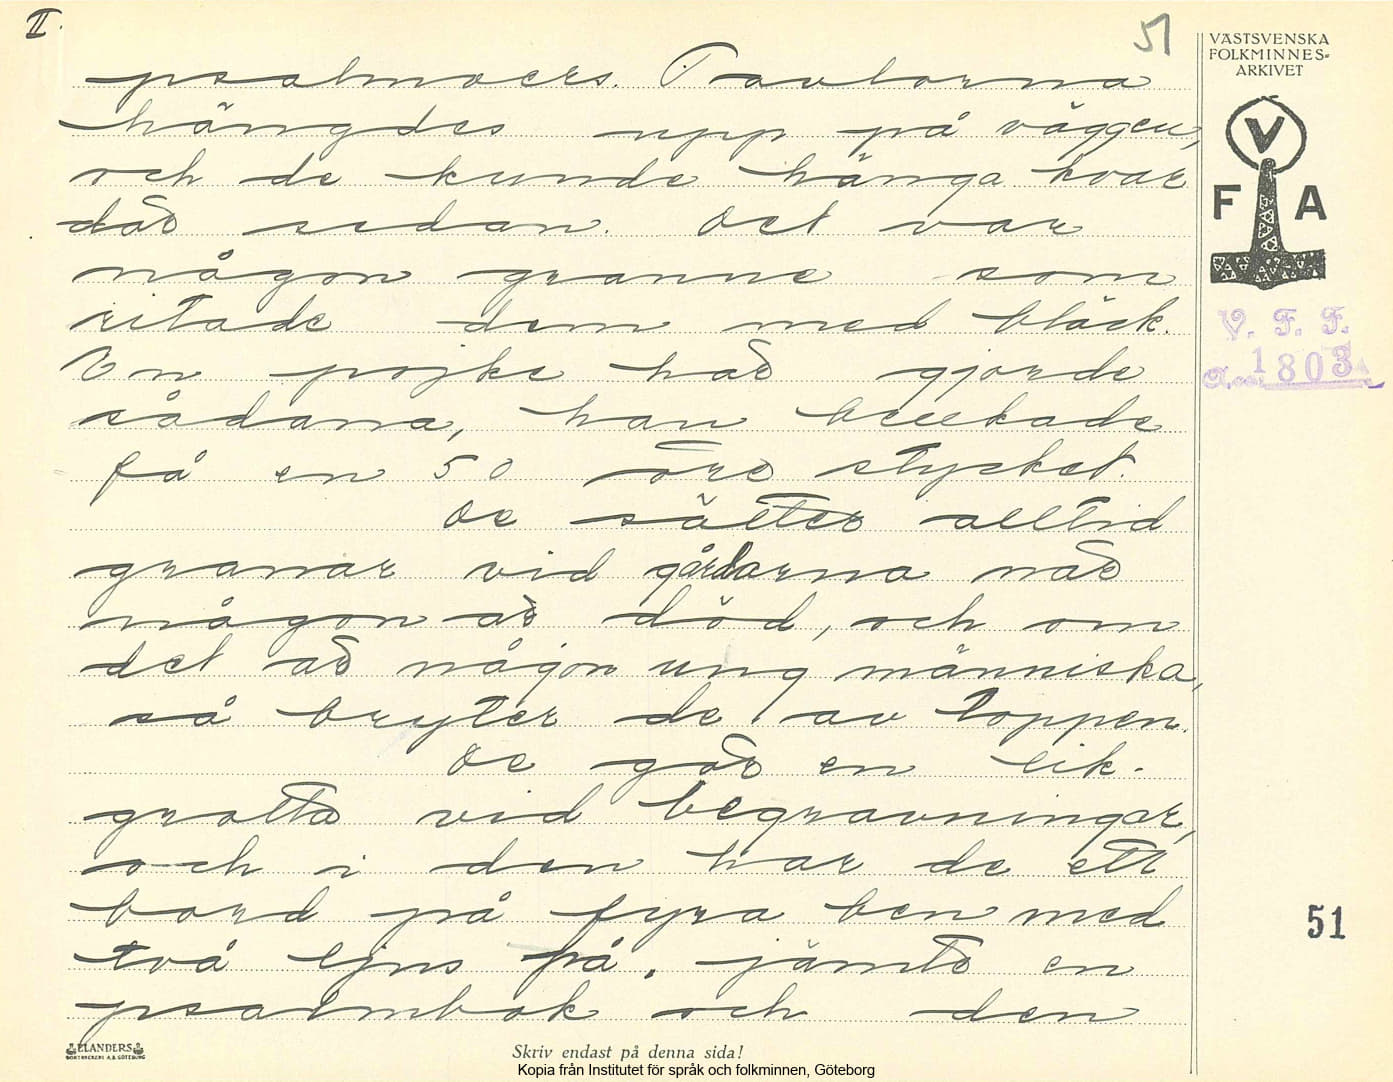 II.
51
VÄSTSVENSKA
FOLKMINNES-
ARKIVET
psalmvers. Tavlorna
hängdes upp på väggen,
och de kunde hänga kvar
där sedan. Det var
någon granne som
ritade dem med bläck.
En pojke här gjorde
sådana, han brukade
få en 50 öre stycket.
De sätter alltid
granar vid gårdarna när
någon är död, och om
det är någon ung människa,
så bryter de av toppen.
De gör en lik-
grotta vid begravningar,
och i den har de ett
bord på fyra ben med
två ljus på, jämte en
psalmbok och den
V
F A
V. F. F.
1803
51
ELANDERS
BOKTRYCKERI A.B. GÖTEBORG
Skriv endast på denna sida!
Kopia från Institutet för språk och folkminnen, Göteborg